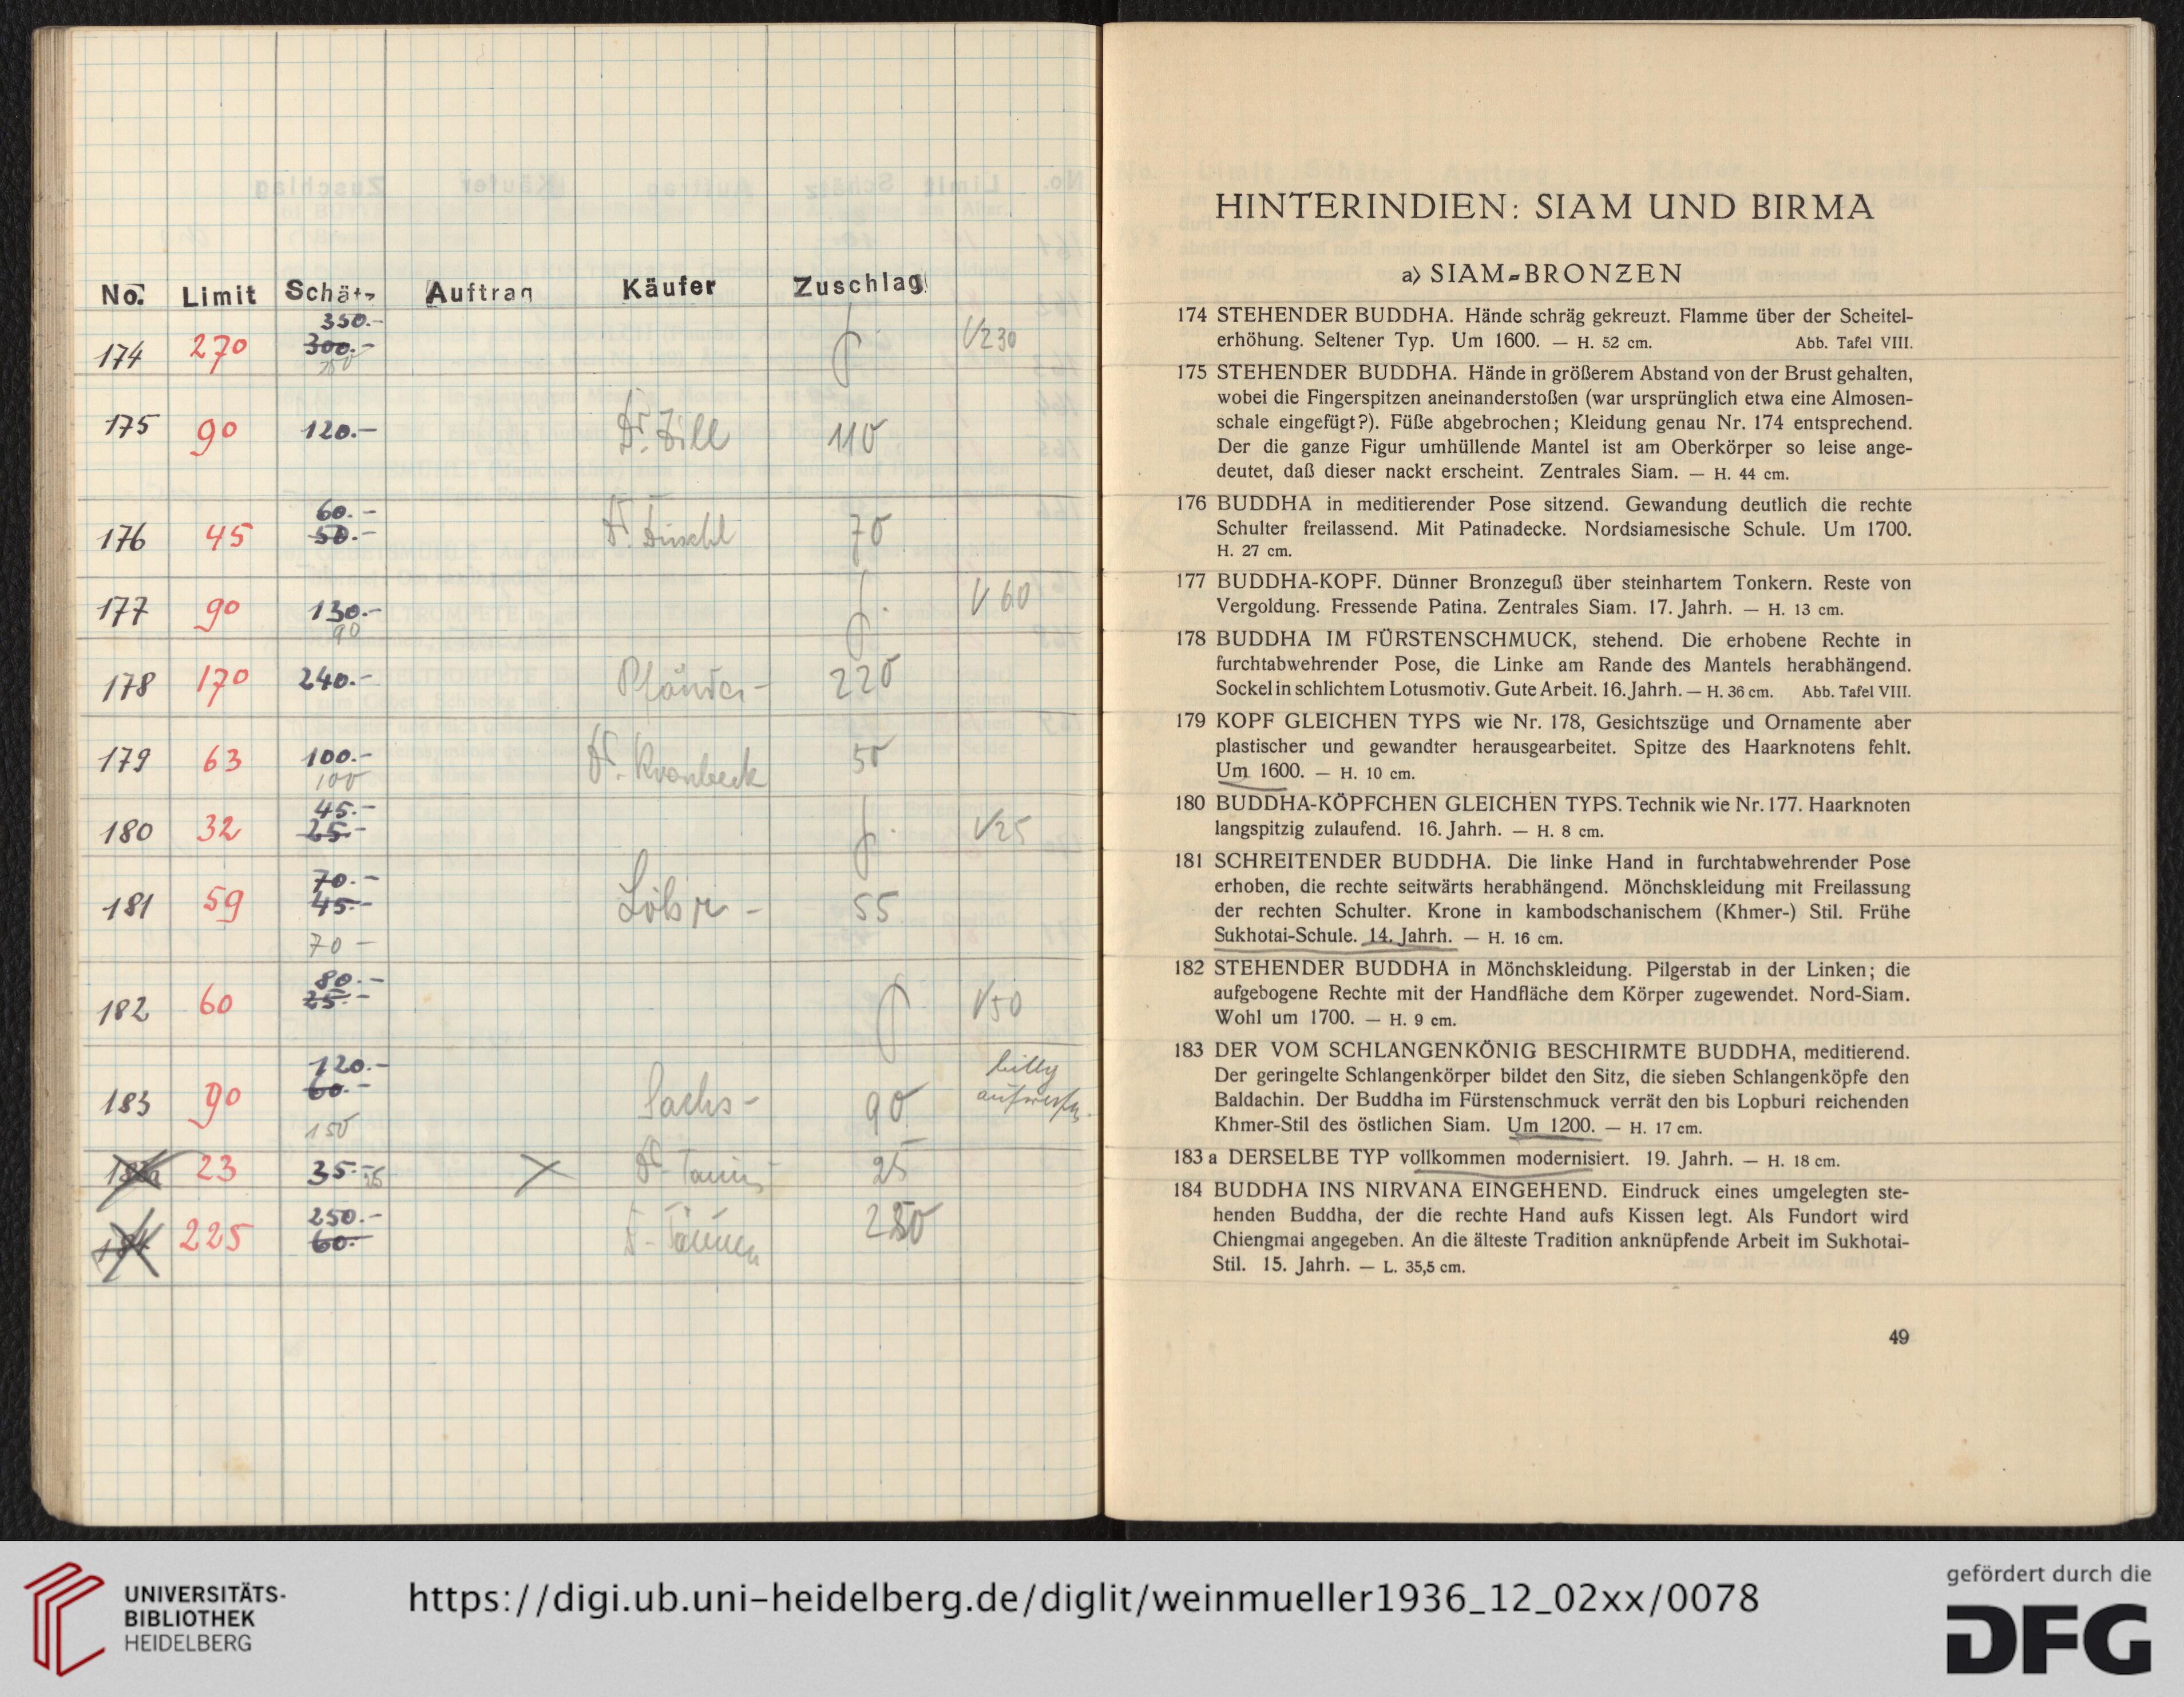 No. Limit Schätz Auftrag Käufer Zuschlag
350.-
174 270 300.- V230
175 90 120.- Dr. Zill 110
60.-
176 45 50.- Dr. 70
177 90 130.- V 60
90
178 170 240.- Pfänder - 220
179 63 100.- Dr. Kronbeck 50
100
45.-
180 32 25.- V25
70.-
181 59 45.- - 55
70 -
80.-
182 60 25.- V50
120.-
183 90 60.- Sachs - 90
150
183a 23 35.- 25
250.-
184 225 60.- 280
HINTERINDIEN: SIAM UND BIRMA
a) SIAM-BRONZEN
174 STEHENDER BUDDHA. Hände schräg gekreuzt. Flamme über der Scheitel-
erhöhung. Seltener Typ. Um 1600. — H. 52 cm. Abb. Tafel VIII.
175 STEHENDER BUDDHA. Hände in größerem Abstand von der Brust gehalten,
wobei die Fingerspitzen aneinanderstoßen (war ursprünglich etwa eine Almosen-
schale eingefügt?). Füße abgebrochen; Kleidung genau Nr. 174 entsprechend.
Der die ganze Figur umhüllende Mantel ist am Oberkörper so leise ange-
deutet, daß dieser nackt erscheint. Zentrales Siam. — H. 44 cm.
176 BUDDHA in meditierender Pose sitzend. Gewandung deutlich die rechte
Schulter freilassend. Mit Patinadecke. Nordsiamesische Schule. Um 1700.
H. 27 cm.
177 BUDDHA-KOPF. Dünner Bronzeguß über steinhartem Tonkern. Reste von
Vergoldung. Fressende Patina. Zentrales Siam. 17. Jahrh. — H. 13 cm.
178 BUDDHA IM FÜRSTENSCHMUCK, stehend. Die erhobene Rechte in
furchtabwehrender Pose, die Linke am Rande des Mantels herabhängend.
Sockel in schlichtem Lotusmotiv. Gute Arbeit. 16. Jahrh. — H. 36 cm. Abb. Tafel VIII.
179 KOPF GLEICHEN TYPS wie Nr. 178, Gesichtszüge und Ornamente aber
plastischer und gewandter herausgearbeitet. Spitze des Haarknotens fehlt.
Um 1600. — H. 10 cm.
180 BUDDHA-KÖPFCHEN GLEICHEN TYPS. Technik wie Nr. 177. Haarknoten
langspitzig zulaufend. 16. Jahrh. — H. 8 cm.
181 SCHREITENDER BUDDHA. Die linke Hand in furchtabwehrender Pose
erhoben, die rechte seitwärts herabhängend. Mönchskleidung mit Freilassung
der rechten Schulter. Krone in kambodschanischem (Khmer-) Stil. Frühe
Sukhotai-Schule. 14. Jahrh. — H. 16 cm.
182 STEHENDER BUDDHA in Mönchskleidung. Pilgerstab in der Linken; die
aufgebogene Rechte mit der Handfläche dem Körper zugewendet. Nord-Siam.
Wohl um 1700. — H. 9 cm.
183 DER VOM SCHLANGENKÖNIG BESCHIRMTE BUDDHA, meditierend.
Der geringelte Schlangenkörper bildet den Sitz, die sieben Schlangenköpfe den
Baldachin. Der Buddha im Fürstenschmuck verrät den bis Lopburi reichenden
Khmer-Stil des östlichen Siam. Um 1200. — H. 17 cm.
183 a DERSELBE TYP vollkommen modernisiert. 19. Jahrh. — H. 18 cm.
184 BUDDHA INS NIRVANA EINGEHEND. Eindruck eines umgelegten ste-
henden Buddha, der die rechte Hand aufs Kissen legt. Als Fundort wird
Chiengmai angegeben. An die älteste Tradition anknüpfende Arbeit im Sukhotai-
Stil. 15. Jahrh. — L. 35,5 cm.
49
UNIVERSITÄTS-
BIBLIOTHEK
HEIDELBERG
https://digi.ub.uni-heidelberg.de/diglit/weinmueller1936_12_02xx/0078
gefördert durch die
DFG